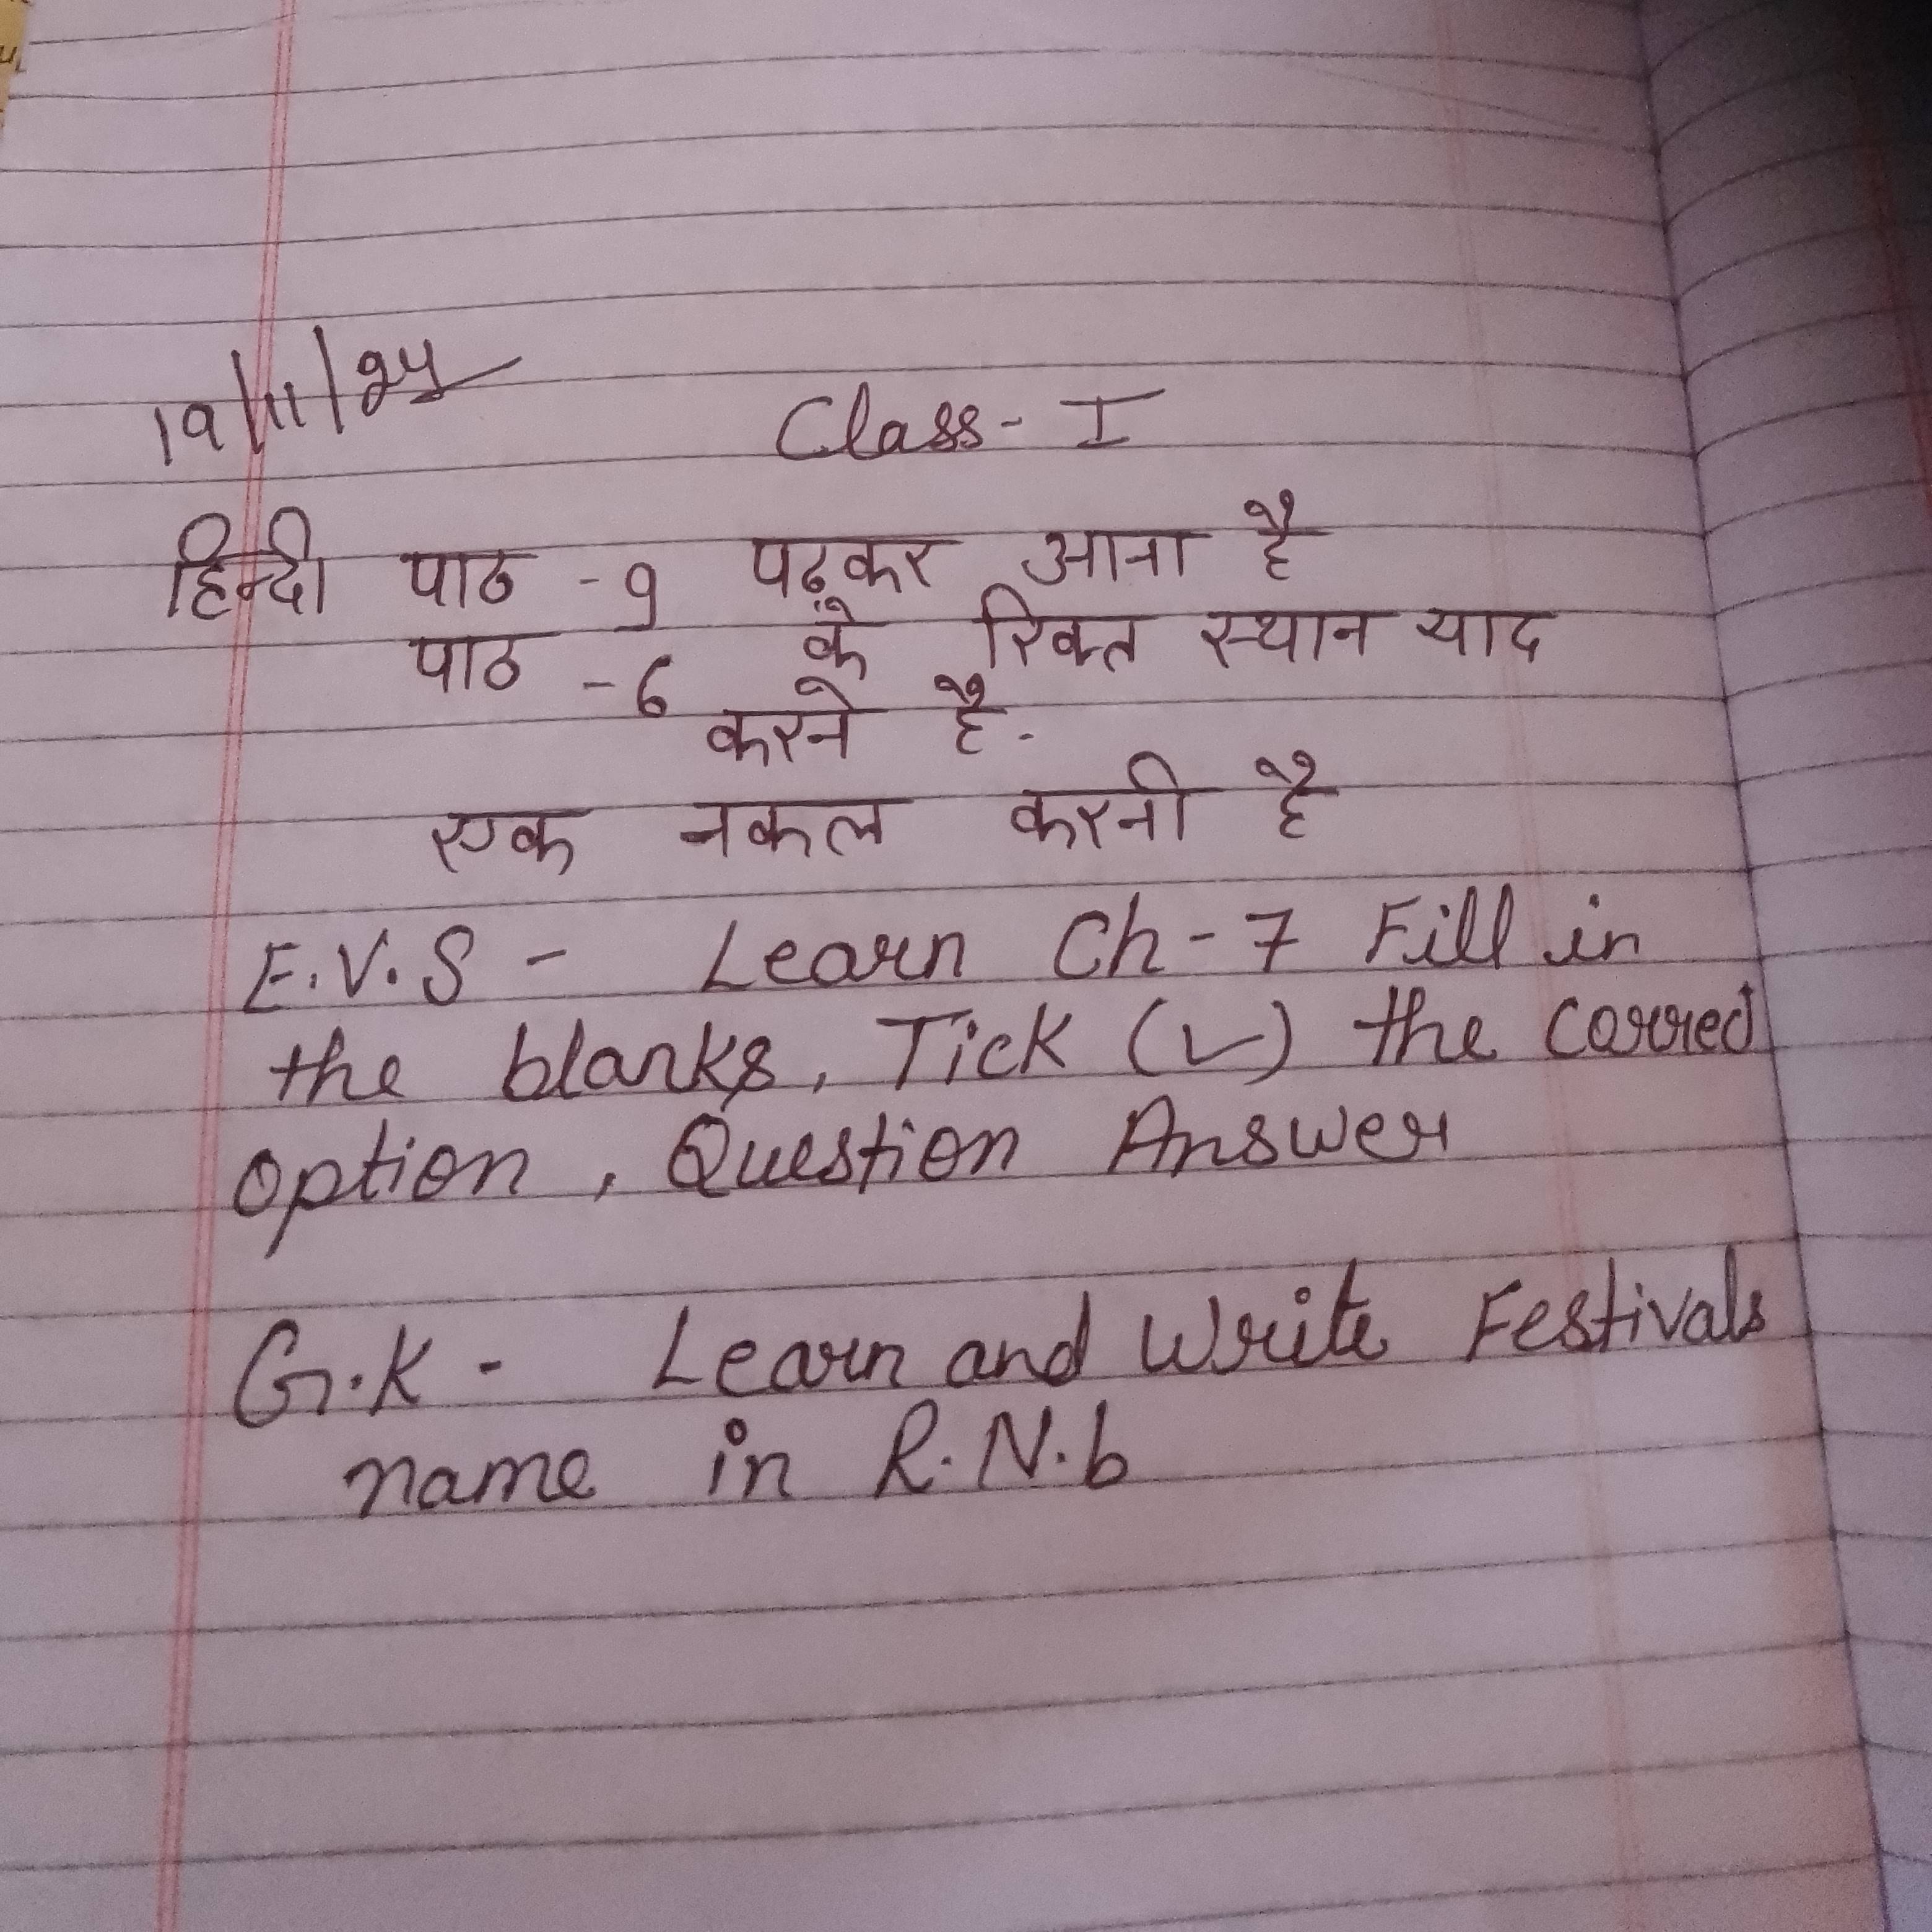 19/11/24
Class - I
हिन्दी पाठ - 9 पढ़कर आना है
पाठ - 6 के रिक्त स्थान याद
करने है.
एक नकल करनी है
E.V.S - Learn Ch - 7 Fill in
the blanks, Tick (✓) the correct
option, Question Answer
G.K - Learn and Write Festivals
name in R.N.b